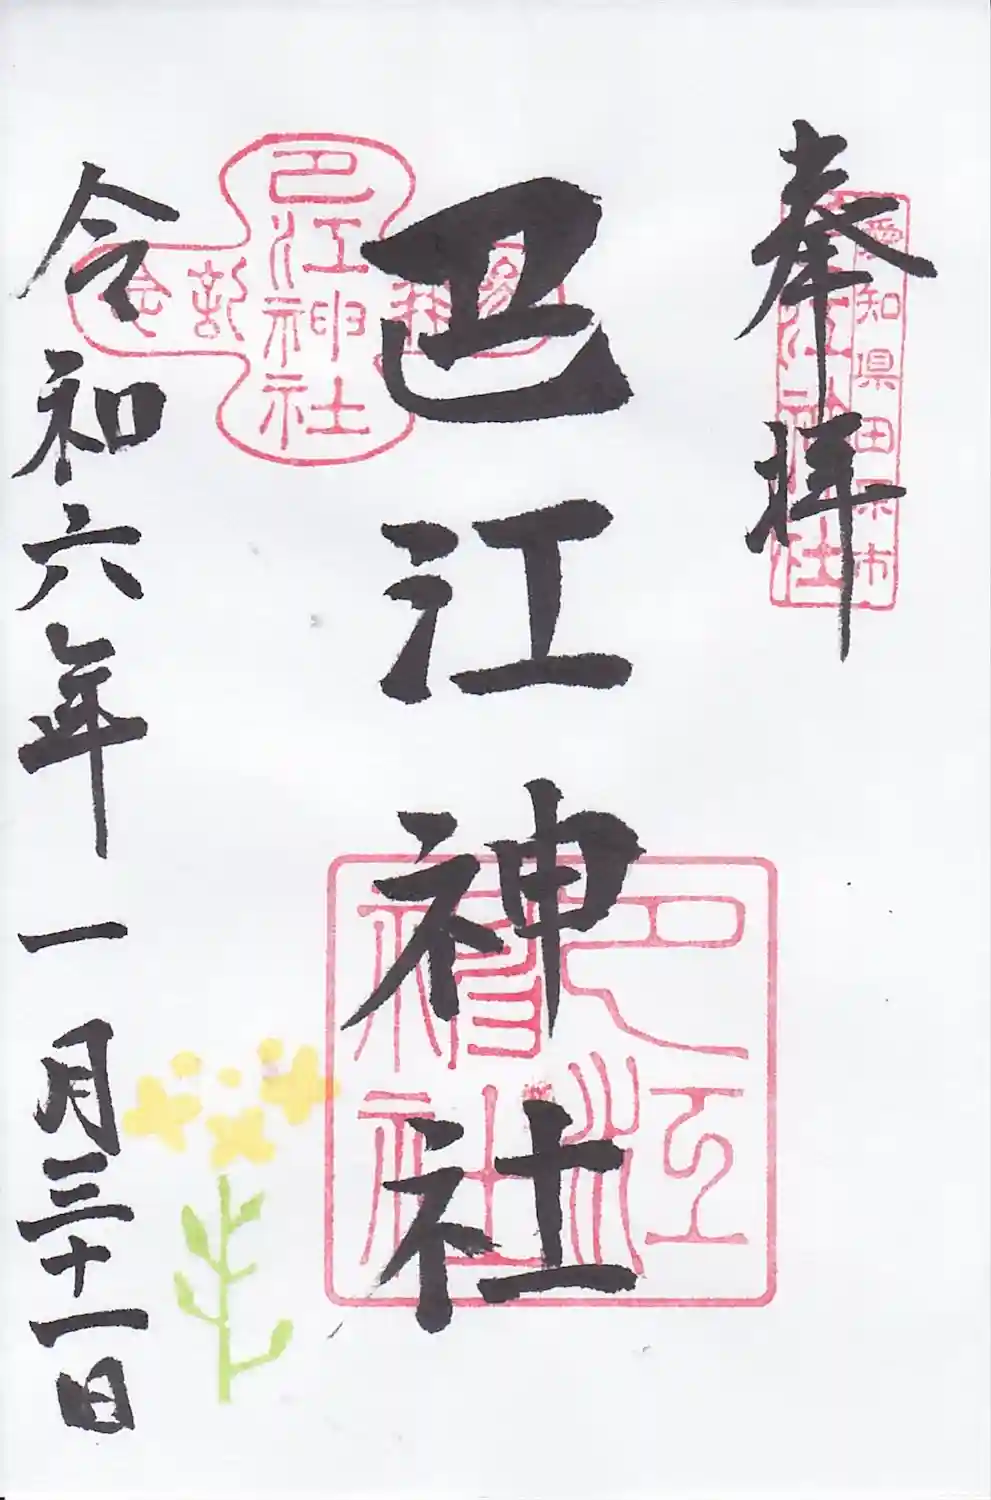 奉拝
愛知県田原市
巴江神社
巴江神社
巴江神社
参拝
記念
巴江神社
令和六年一月三十一日